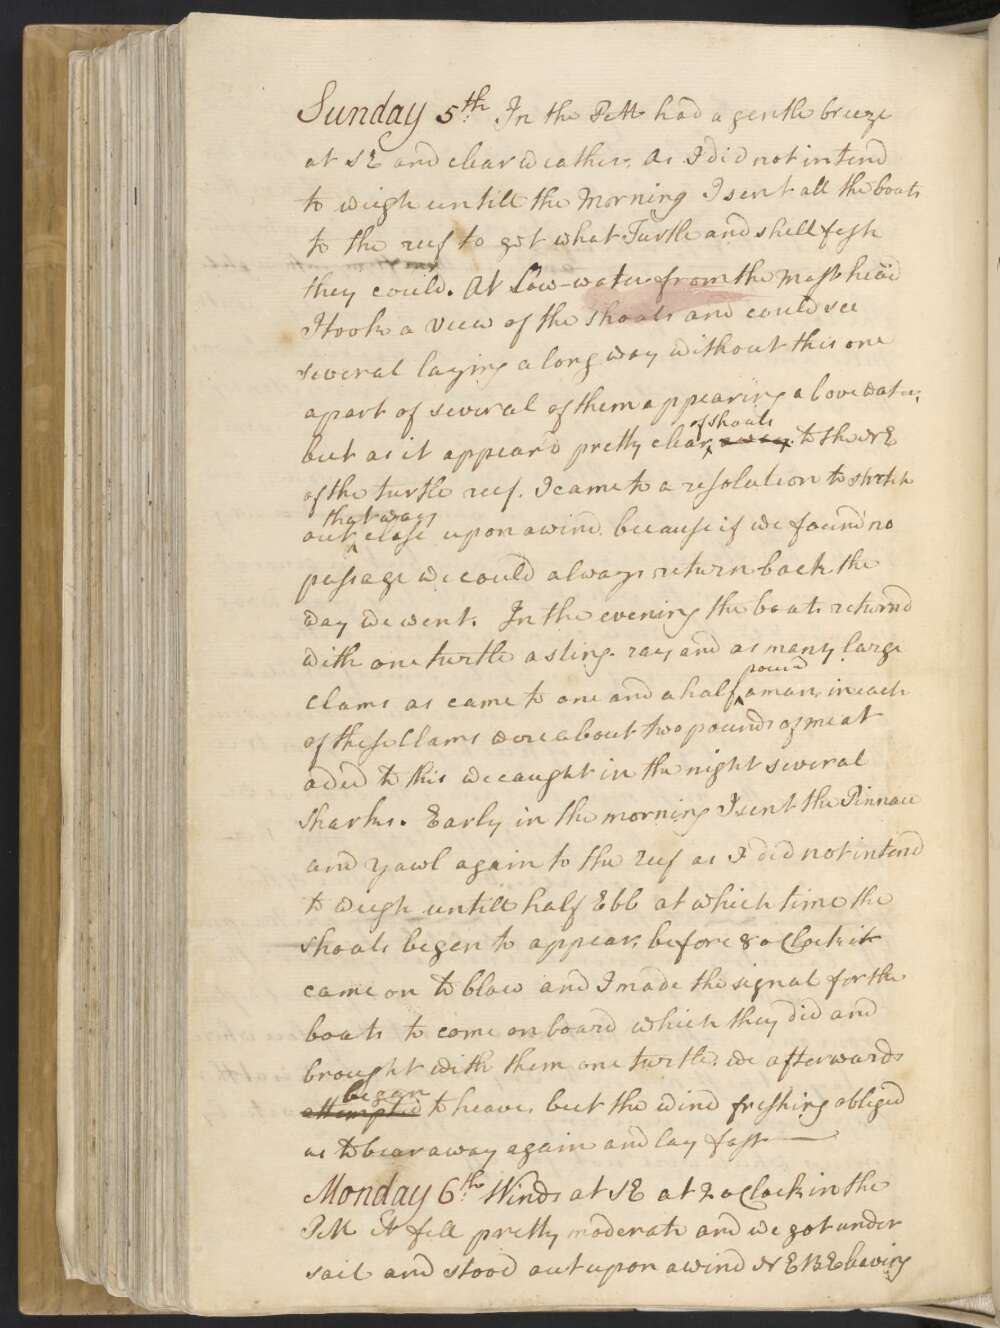 Sunday 5th. In the PM had a gentle breeze
at SE and clear weather. As I did not intend
to weigh untill the Morning I sent all the boats
to the reef to get what Turtle and shell fish
they could. At Low-water from the Mast head
I took a view of the shoals and could see
several laying a long way without this one
a part of several of them appearing above water;
of shoals
but as it appear'd pretty clear to the NE
of the turtle reef. I came to a resolution to stretch
that way
out close upon a wind because if we found no
passage we could always return back the
way we went. In the evening the boats return'd
with one turtle a sting-ray and as many large
pound
clams as came to one and a half a man, in each
of these Clams were about two pounds of meat
aded to this we caught in the night several
Sharks. Early in the morning I sent the Pinnace
and yawl again to the reef as I did not intend
to weigh untill half Ebb at which time the
shoals began to appear, before 8 oClock it
came on to blow and I made the signal for the
boats to come on board which they did and
brought with them one turtle, we afterwards
began
attempted to heave, but the wind freshing obliged
us to bear away again and lay fast
Monday 6th. Winds at SE at 2 oClock in the
PM it fell pretty moderate and we got under
sail and stood out upon a wind NEBE leaving